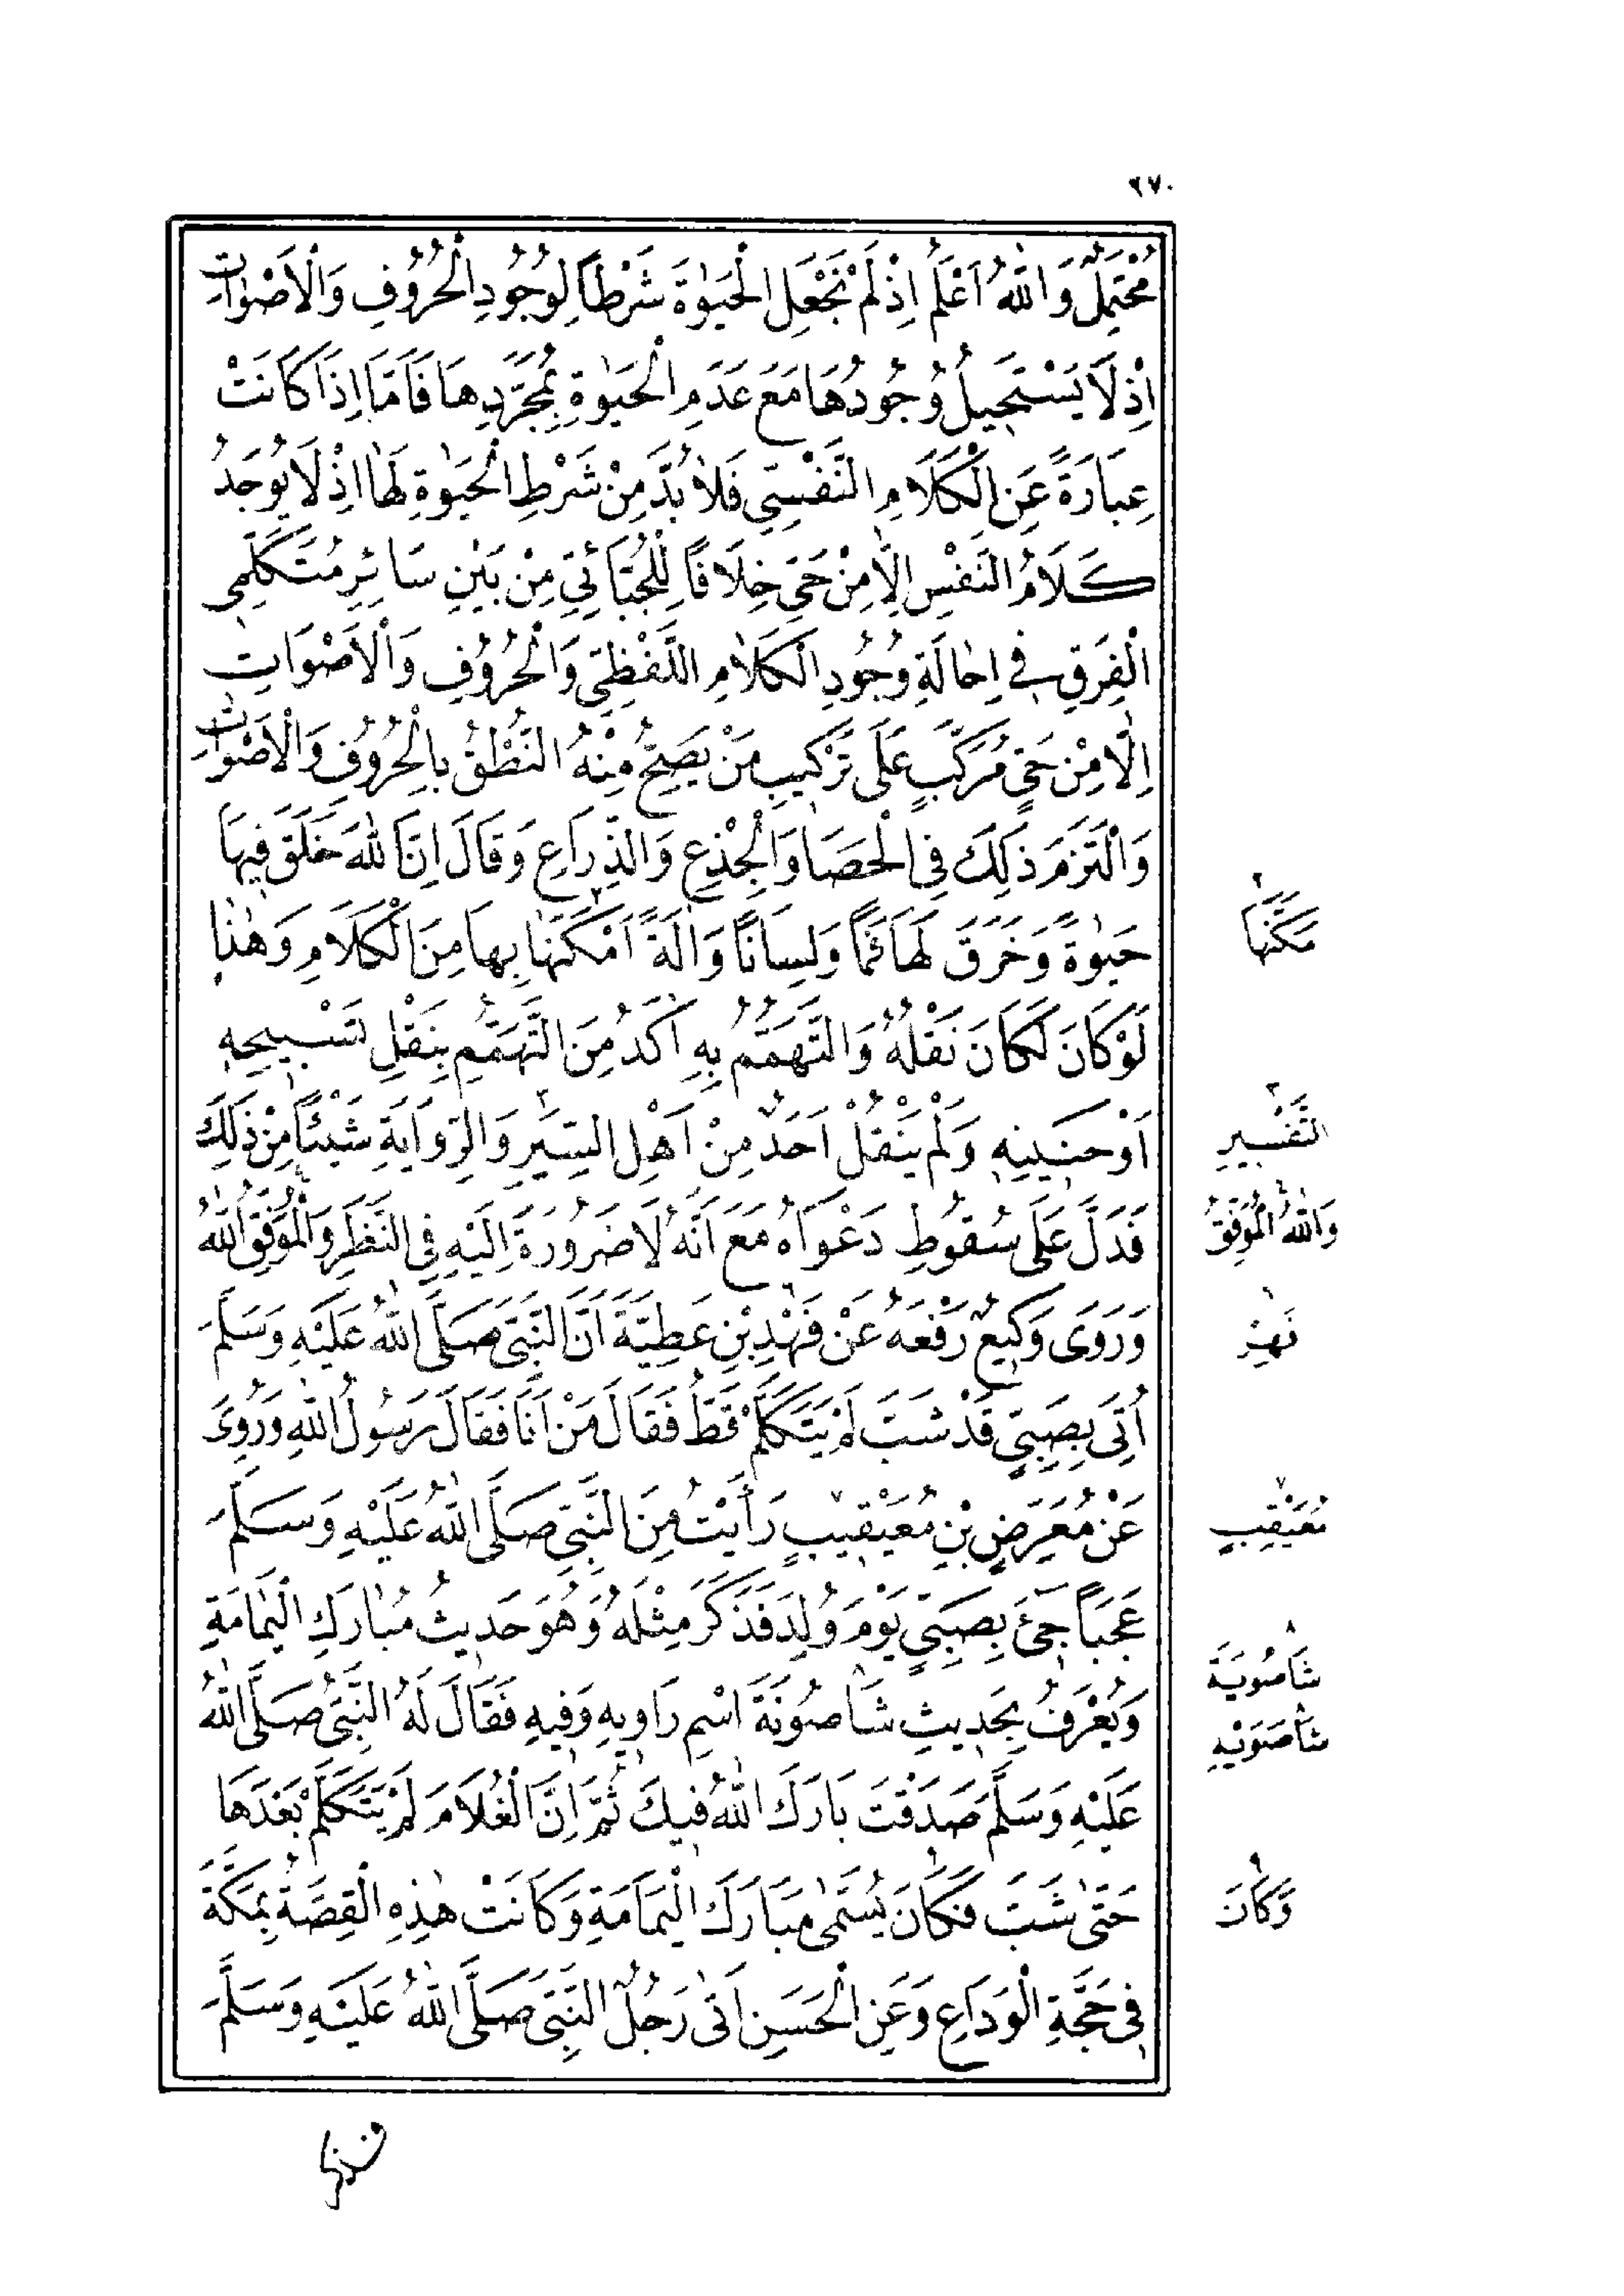 ٢٧٠
مُحْتَمِلٌ وَاللّٰهُ اَعْلَمُ اِذْ لَمْ نَجْعَلِ الْحَيٰوةَ شَرْطاً لِوُجُودِ الْحُرُوُفِ وَالْاَصْوَاتِ
اِذْ لَا يَسْتَحِيلُ وُجُودُهَا مَعَ عَدَمِ الْحَيٰوةِ بِمُجَرَّدِهَا فَاَمَّا اِذَا كَانَتْ
عِبَارَةً عَنِ الْكَلَامِ النَّفْسِيِّ فَلَا بُدَّ مِنْ شَرْطِ الْحَيٰوةِ لَهَا اِذْ لَا يُوجَدُ
كَلَامُ النَّفْسِ اِلَّا مِنْ حَيٍّ خِلَافًا لِلْجُبَّائِيِّ مِنْ بَيْنِ سَائِرِ مُتَكَلِّمِي
الْفِرَقِ فِي اِحَالَةِ وُجُودِ الْكَلَامِ اللَّفْظِيِّ وَالْحُرُوُفِ وَالْاَصْوَاتِ
اِلَّا مِنْ حَيٍّ مُرَكَّبٍ عَلَى تَرْكِيبِ مَنْ يَصِحُّ مِنْهُ النُّطْقُ بِالْحُرُوُفِ وَالْاَصْوَاتِ
وَالْتَزَمَ ذَلِكَ فِي الْحَصَا وَالْجِذْعِ وَالذِّرَاعِ وَقَالَ اِنَّ اللّٰهَ خَلَقَ فِيهَا
حَيٰوةً وَخَرَقَ لَهَا فَمًا وَلِسَانًا وَاٰلَةً اَمْكَنَهَا بِهَا مِنَ الْكَلَامِ وَهٰذَا
مَكَّنَهَا
لَوْ كَانَ لَكَانَ نَقْلُهُ وَالتَّهَمُّمُ بِهِ اٰكَدُ مِنَ التَّهَمُّمِ بِنَقْلِ تَسْبِيحِهِ
اَوْ حَنِينِهِ وَلَمْ يَنْقُلْ اَحَدٌ مِنْ اَهْلِ السِّيَرِ وَالرِّوَايَةِ شَيْئًا مِنْ ذَلِكَ
التَّفْسِيرِ
فَدَلَّ عَلَى سُقُوطِ دَعْوَاهُ مَعَ اَنَّهُ لَا ضَرُورَةَ اِلَيْهِ فِي النَّظَرِ وَالْمُوَفِّقُ اللّٰهُ
وَاللّٰهُ الْمُوَفِّقُ
وَرَوَى وَكِيعٌ رَفَعَهُ عَنْ فَهْدِ بْنِ عَطِيَّةَ اَنَّ النَّبِيَّ صَلَّى اللّٰهُ عَلَيْهِ وَسَلَّمَ
اُتِيَ بِصَبِيٍّ قَدْ شَبَّ لَمْ يَتَكَلَّمْ قَطُّ فَقَالَ مَنْ اَنَا فَقَالَ رَسُولُ اللّٰهِ وَرُوِيَ
عَنْ مُعَرِّضِ بْنِ مُعَيْقِيبٍ رَأَيْتُ مِنَ النَّبِيِّ صَلَّى اللّٰهُ عَلَيْهِ وَسَلَّمَ
مُعَيْقِبٍ
عَجَبًا جِئَ بِصَبِيٍّ يَوْمَ وُلِدَ فَذَكَرَ مِثْلَهُ وَهُوَ حَدِيثُ مُبَارَكِ الْيَمَامَةِ
وَيُعْرَفُ بِحَدِيثِ شَاصُونَةَ اسْمِ رَاوِيهِ وَفِيهِ فَقَالَ لَهُ النَّبِيُّ صَلَّى اللّٰهُ
شَاصُويَةَ
شَاصَوَيْهِ
عَلَيْهِ وَسَلَّمَ صَدَقْتَ بَارَكَ اللّٰهُ فِيكَ ثُمَّ اِنَّ الْغُلَامَ لَمْ يَتَكَلَّمْ بَعْدَهَا
حَتّٰى شَبَّ فَكَانَ يُسَمّٰى مُبَارَكَ الْيَمَامَةِ وَكَانَتْ هٰذِهِ الْقِصَّةُ بِمَكَّةَ
وَكَانَ
فِي حَجَّةِ الْوَدَاعِ وَعَنِ الْحَسَنِ اَتٰى رَجُلٌ النَّبِيَّ صَلَّى اللّٰهُ عَلَيْهِ وَسَلَّمَ